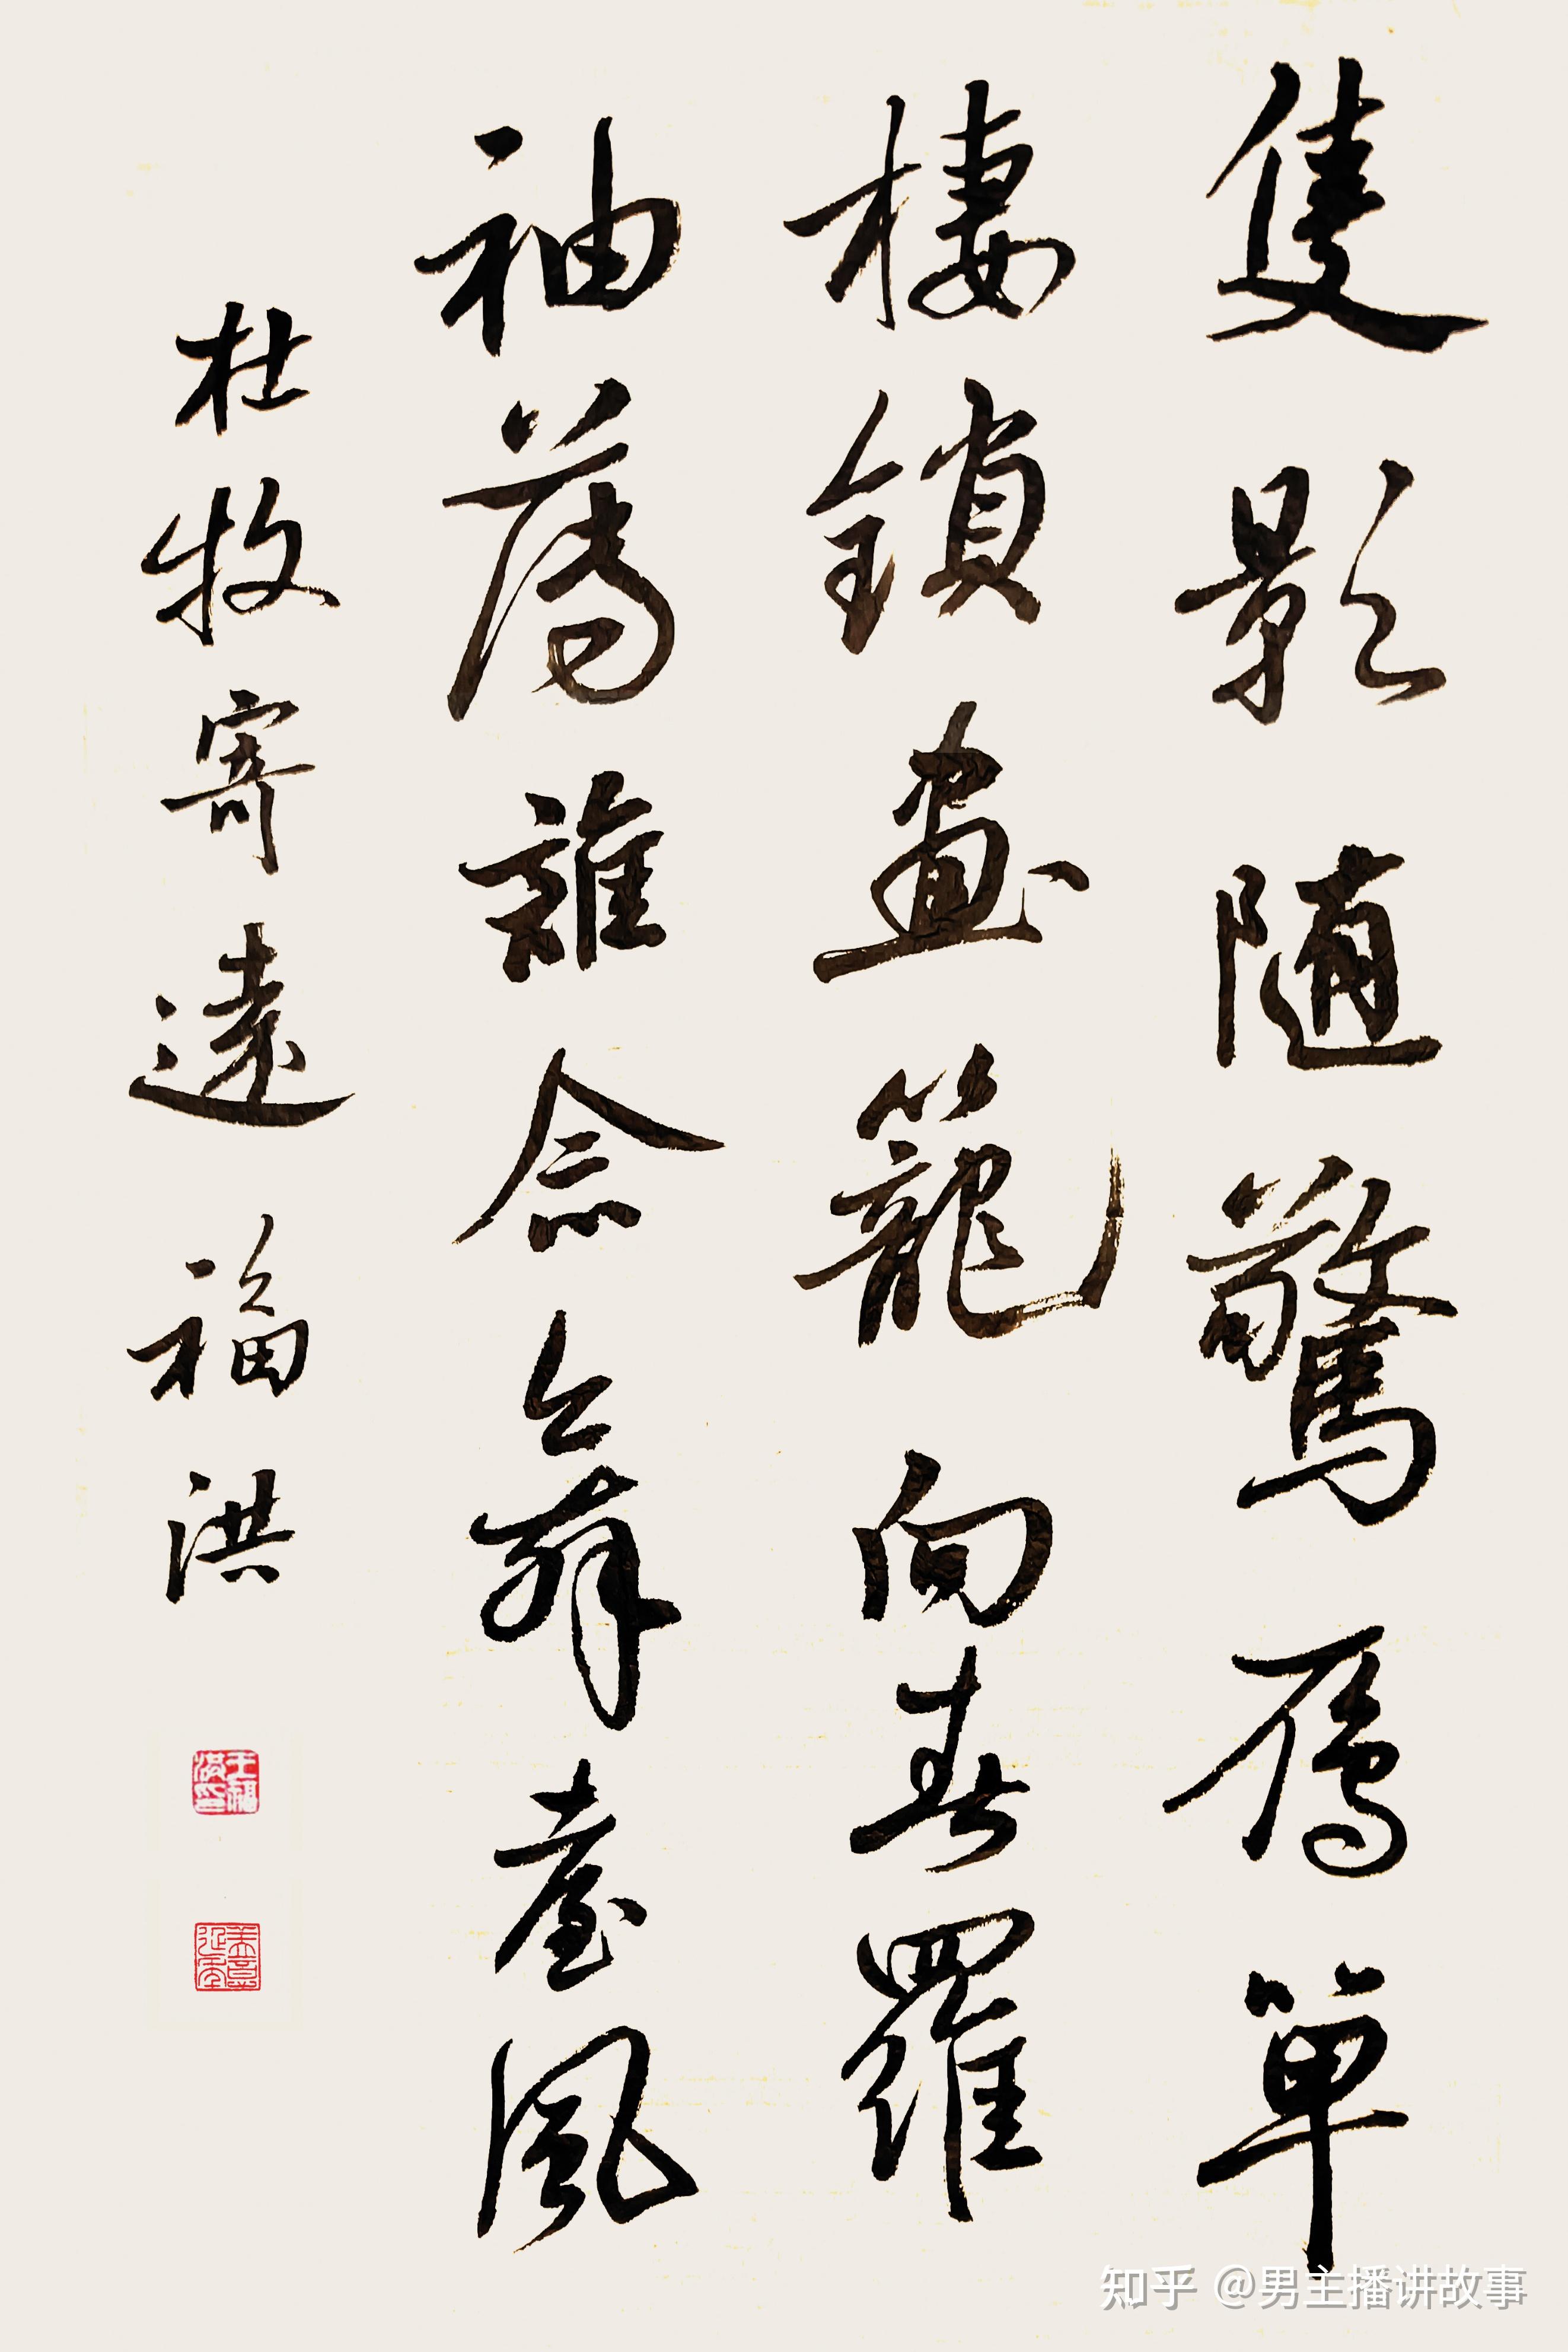 隻影随驚雁單
棲鎖畫籠向春羅
袖薄誰念舞臺風
杜牧寄遠 福洪
王福洪印
知乎 @男主播讲故事